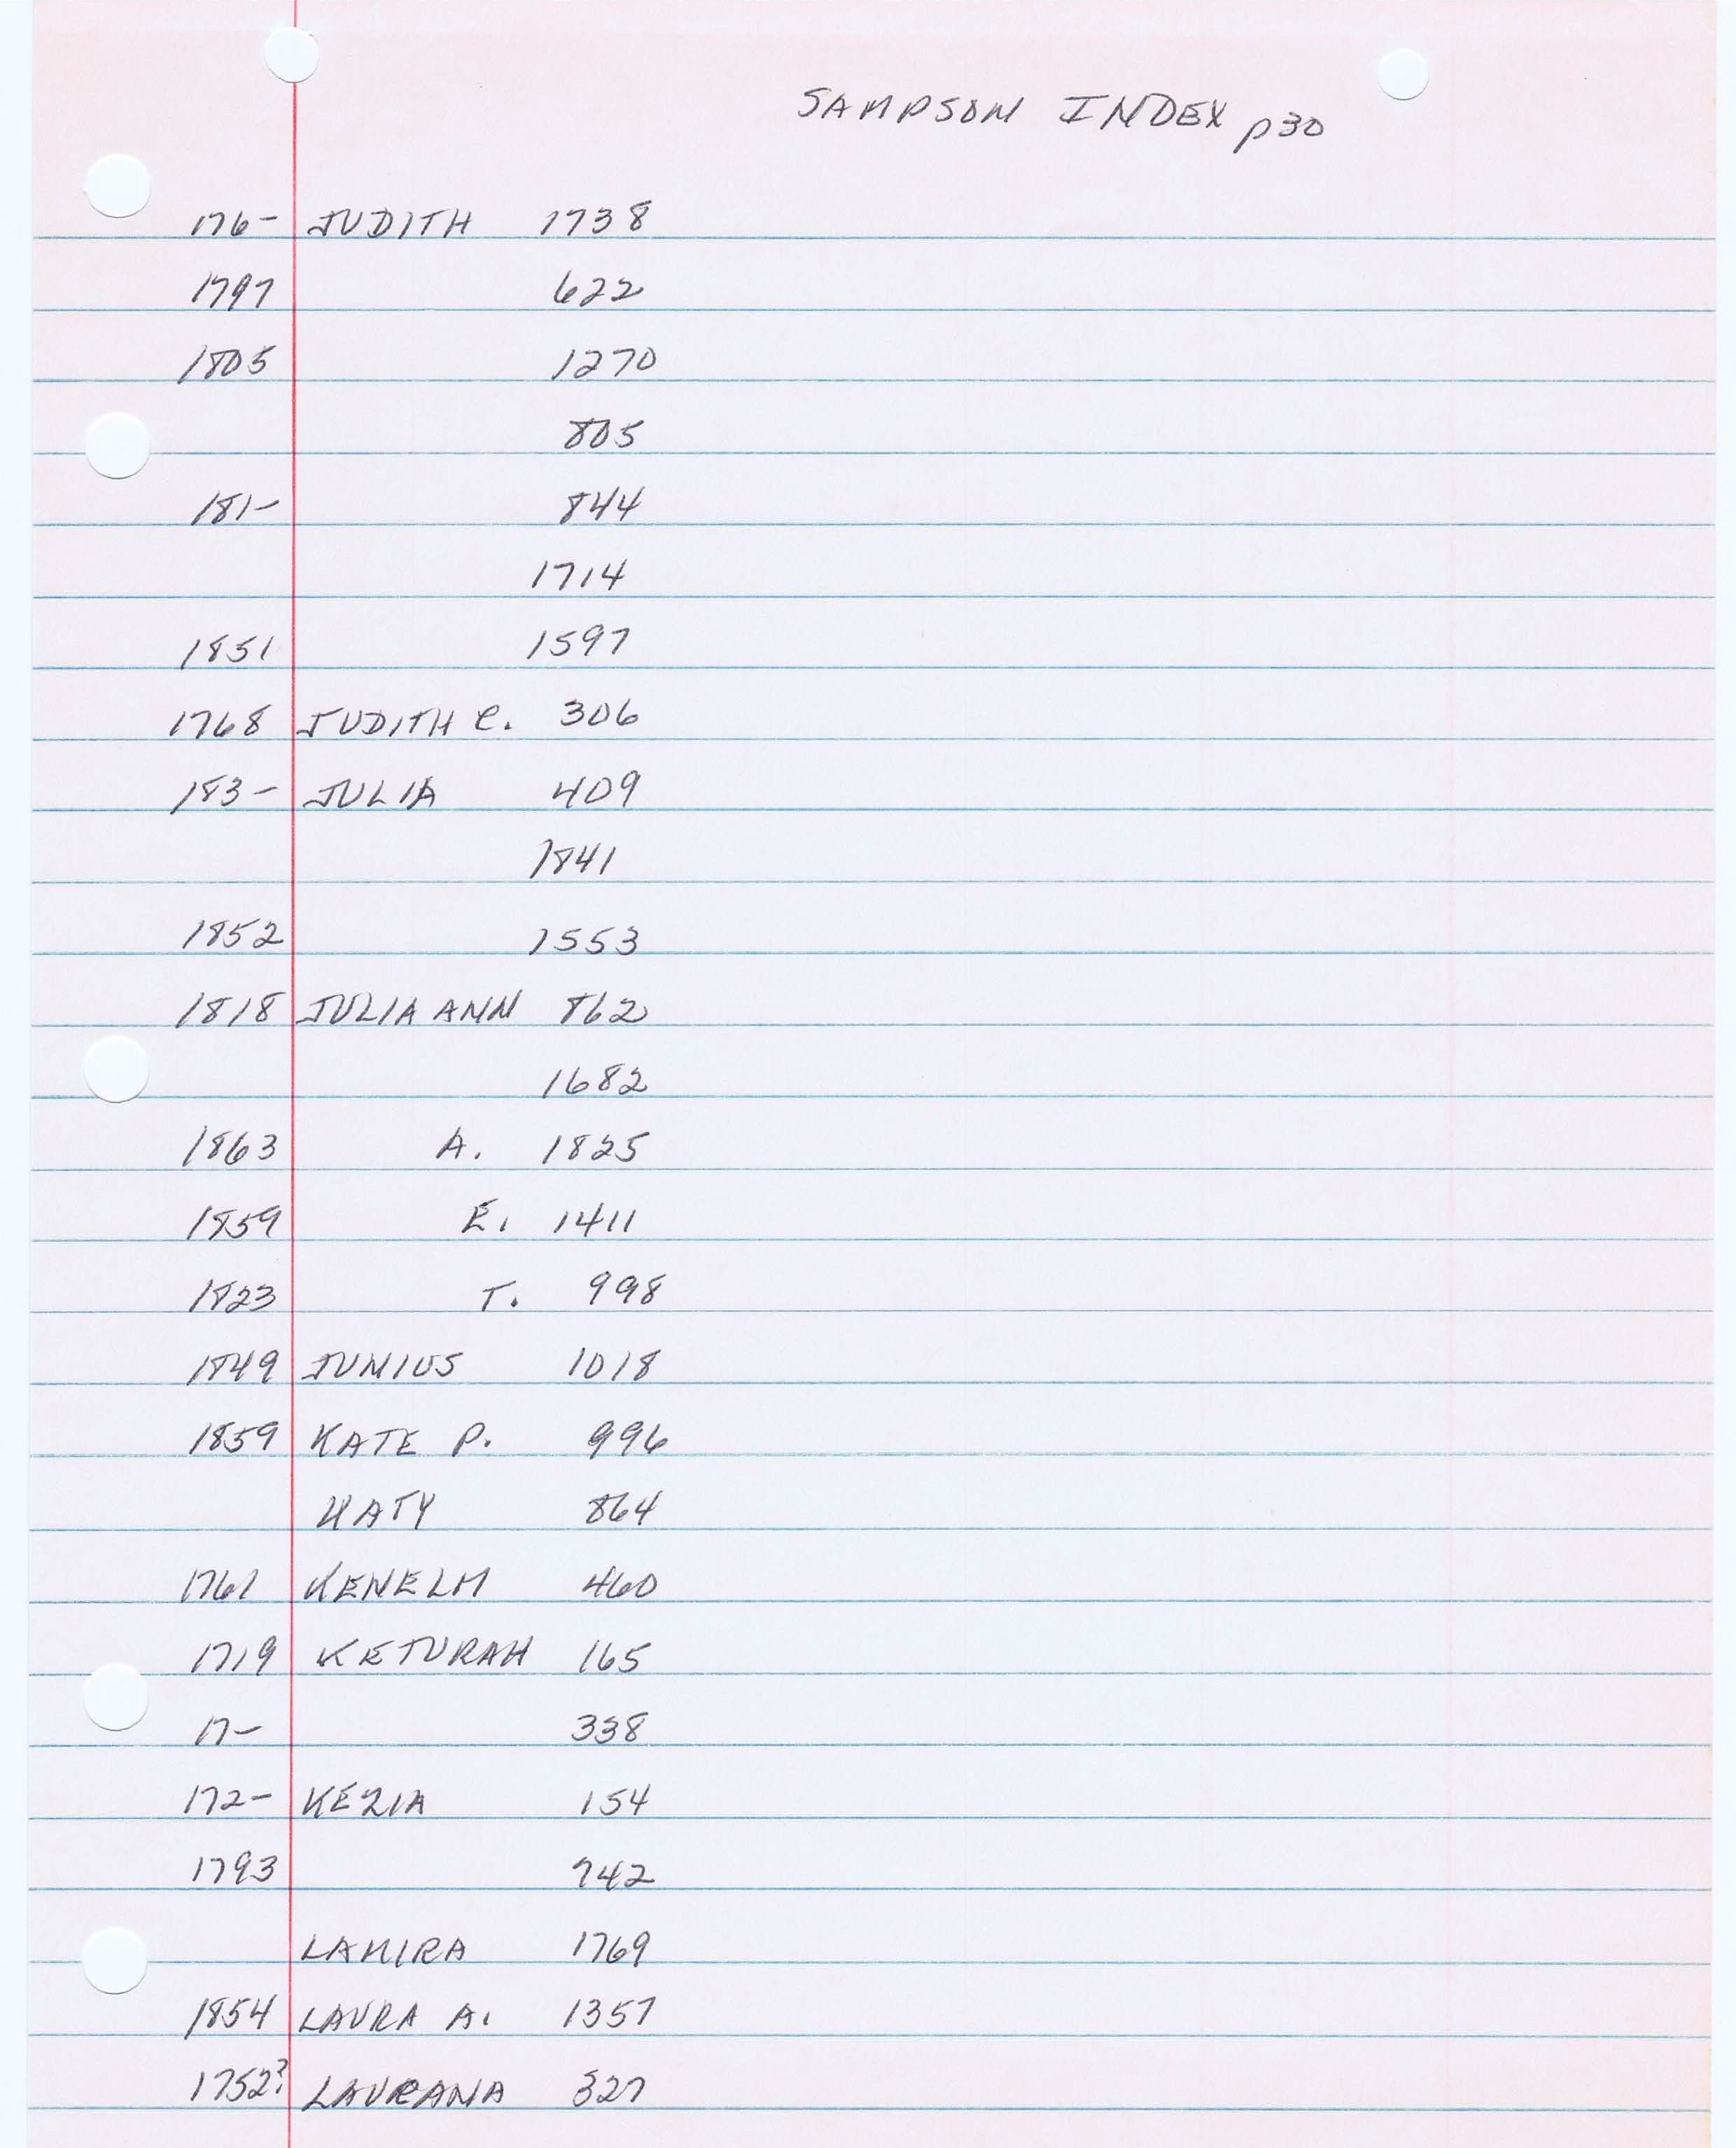 SAMPSON INDEX p30
176- JUDITH 1738
1797 622
1805 1270
805
181- 844
1714
1851 1597
1768 JUDITH C. 306
183- JULIA 409
1841
1852 1553
1818 JULIA ANN 862
1682
1863 A. 1825
1859 E. 1411
1823 T. 998
1849 JUNIUS 1018
1859 KATE P. 996
KATY 864
1761 KENELM 460
1719 KETURAH 165
17- 338
172- KEZIA 154
1793 742
LAMIRA 1769
1854 LAURA A. 1357
1752? LAURANA 327